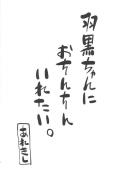 羽黒ちゃんに
おちんちん
いれたい。
あれきし